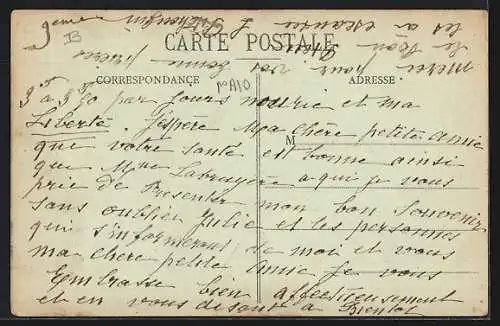 CARTE POSTALE
CORRESPONDANCE
ADRESSE
M
B
3F à 3F50 par jours nourrie et ma
Liberté. J'espère Ma chère petite amie
que votre santé est bonne ainsi
que Mme Labruyère a qui je vous
prie de Presenter mon bon souvenir
sans oublier Julie et les personnes
qui s'informeront de moi et vous
ma chère petite Amie je vous
Embrasse bien affectieusement
et en vous disant a Bientot
merci pour vos bonne prières
le
les a